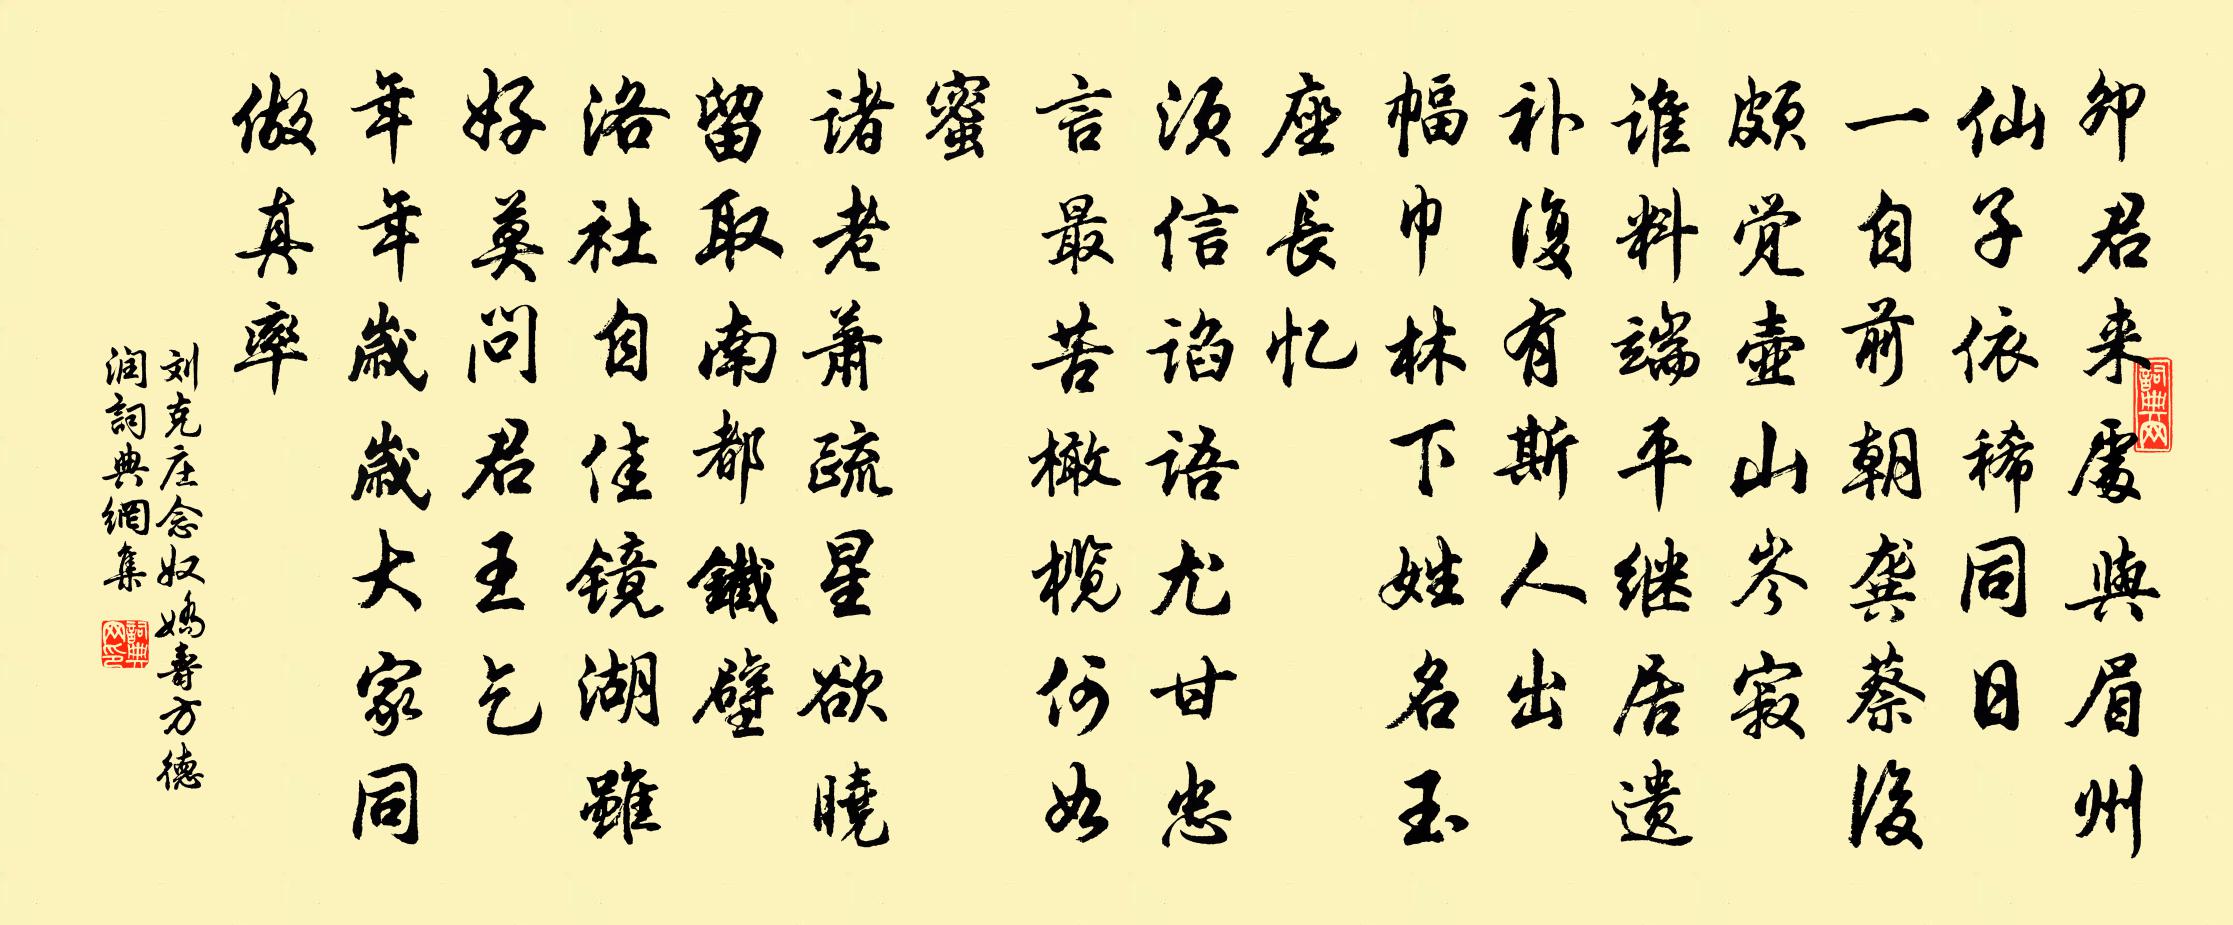 卯君来處與眉州
仙子依稀同日
一自前朝龚蔡後
颇觉壶山岑寂
谁料端平继居遗
补復有斯人出
幅巾林下姓名玉
座長忆
须信谄语尤甘忠
言最苦橄榄何如
蜜
诸老萧疏星欲曉
留取南都鐵壁
洛社自佳镜湖雖
好莫问君王乞
年年歲歲大家同
做真率
刘克庄念奴嬌壽方德
润詞典網集
詞典网
詞典网印